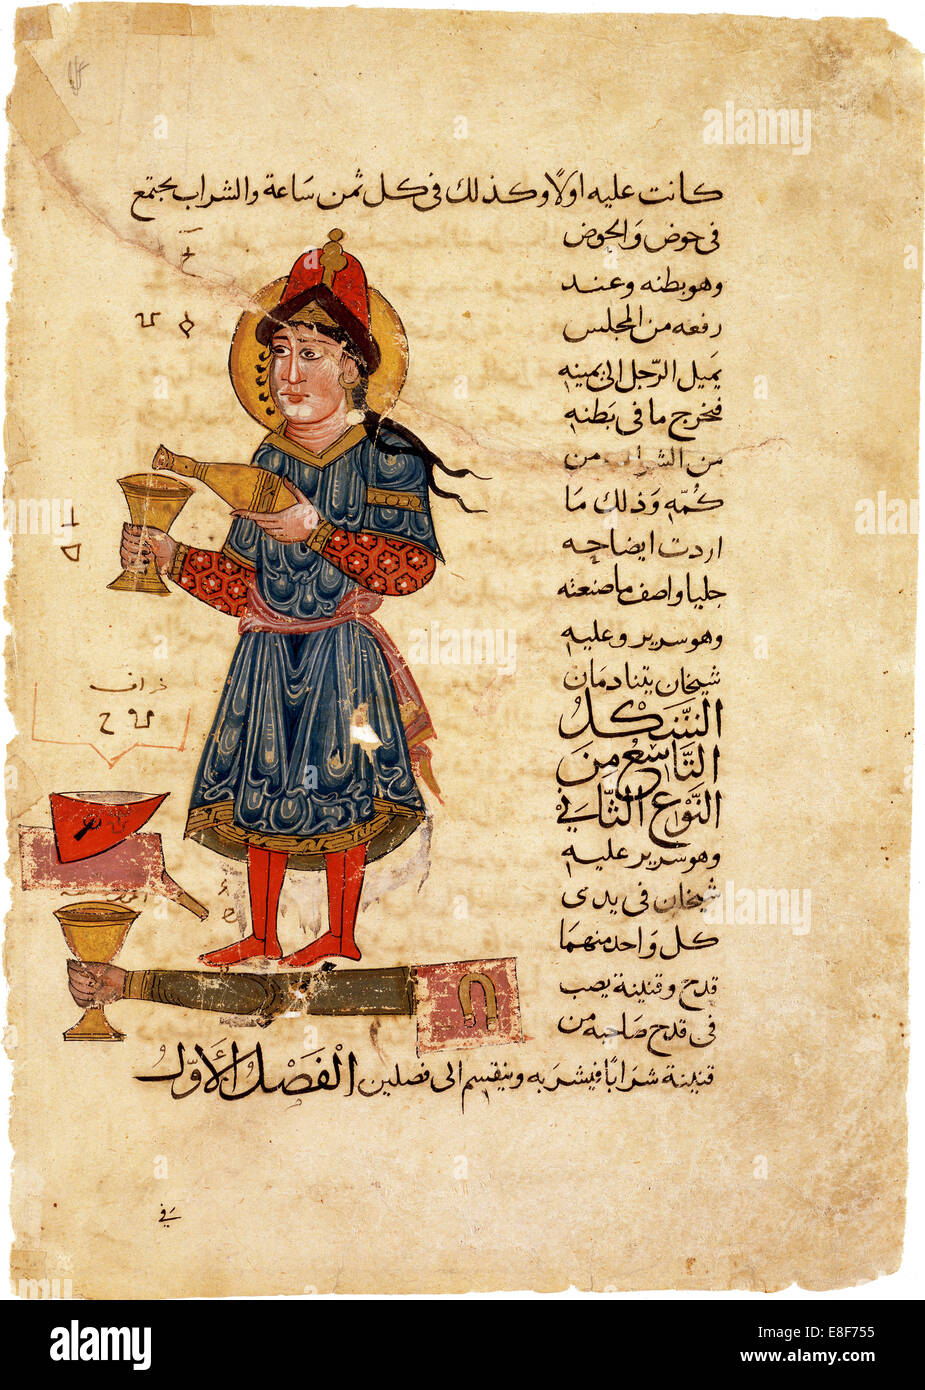 كانت عليه اولًا وكذلك في كل ثمن سَاعة والشراب يجتمع
في حوض وَالحوض
وهو بطنه وعند
رفعه من المجلس
يَميل الرّجل الى يمينه
فيخرج ما في بَطنه
من الشراب من
كُمّه وَذلك مَا
اردت ايضاحه
جليا واصف ما صنعته
وهو سرير وعليه
شيخان يتنادمَان
الشَّكل
التَّاسِعُ مِنَ
النَّوْعِ الثَّانِي
وهو سرير عليه
شيخان في يدى
كل وَاحد منهمَا
قدح وقنينة يصب
في قدح صَاحبه من
قنينة شرَابًا فيشربه وينقسم الى فصلين الفَصْل الأوّل
في
خ
ط
a
alamy
alamy stock photo
E8F755
www.alamy.com